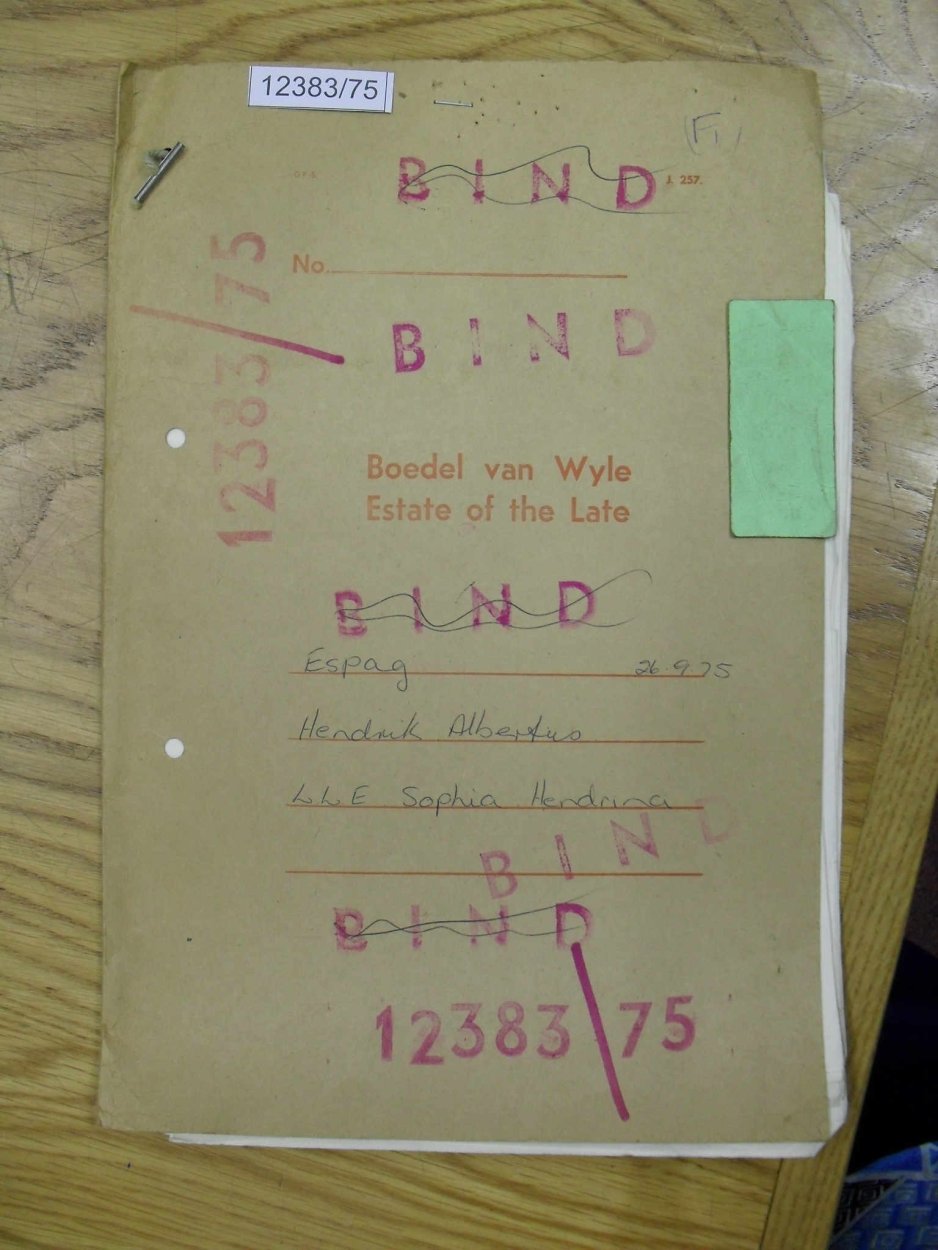 12383/75
(F1)
G.P.-S.
J. 257.
BIND
No.
12383/75
BIND
Boedel van Wyle
Estate of the Late
BIND
Espag 26.9.75
Hendrik Albertus
LLE Sophia Hendrina
BIND
BIND
12383/75